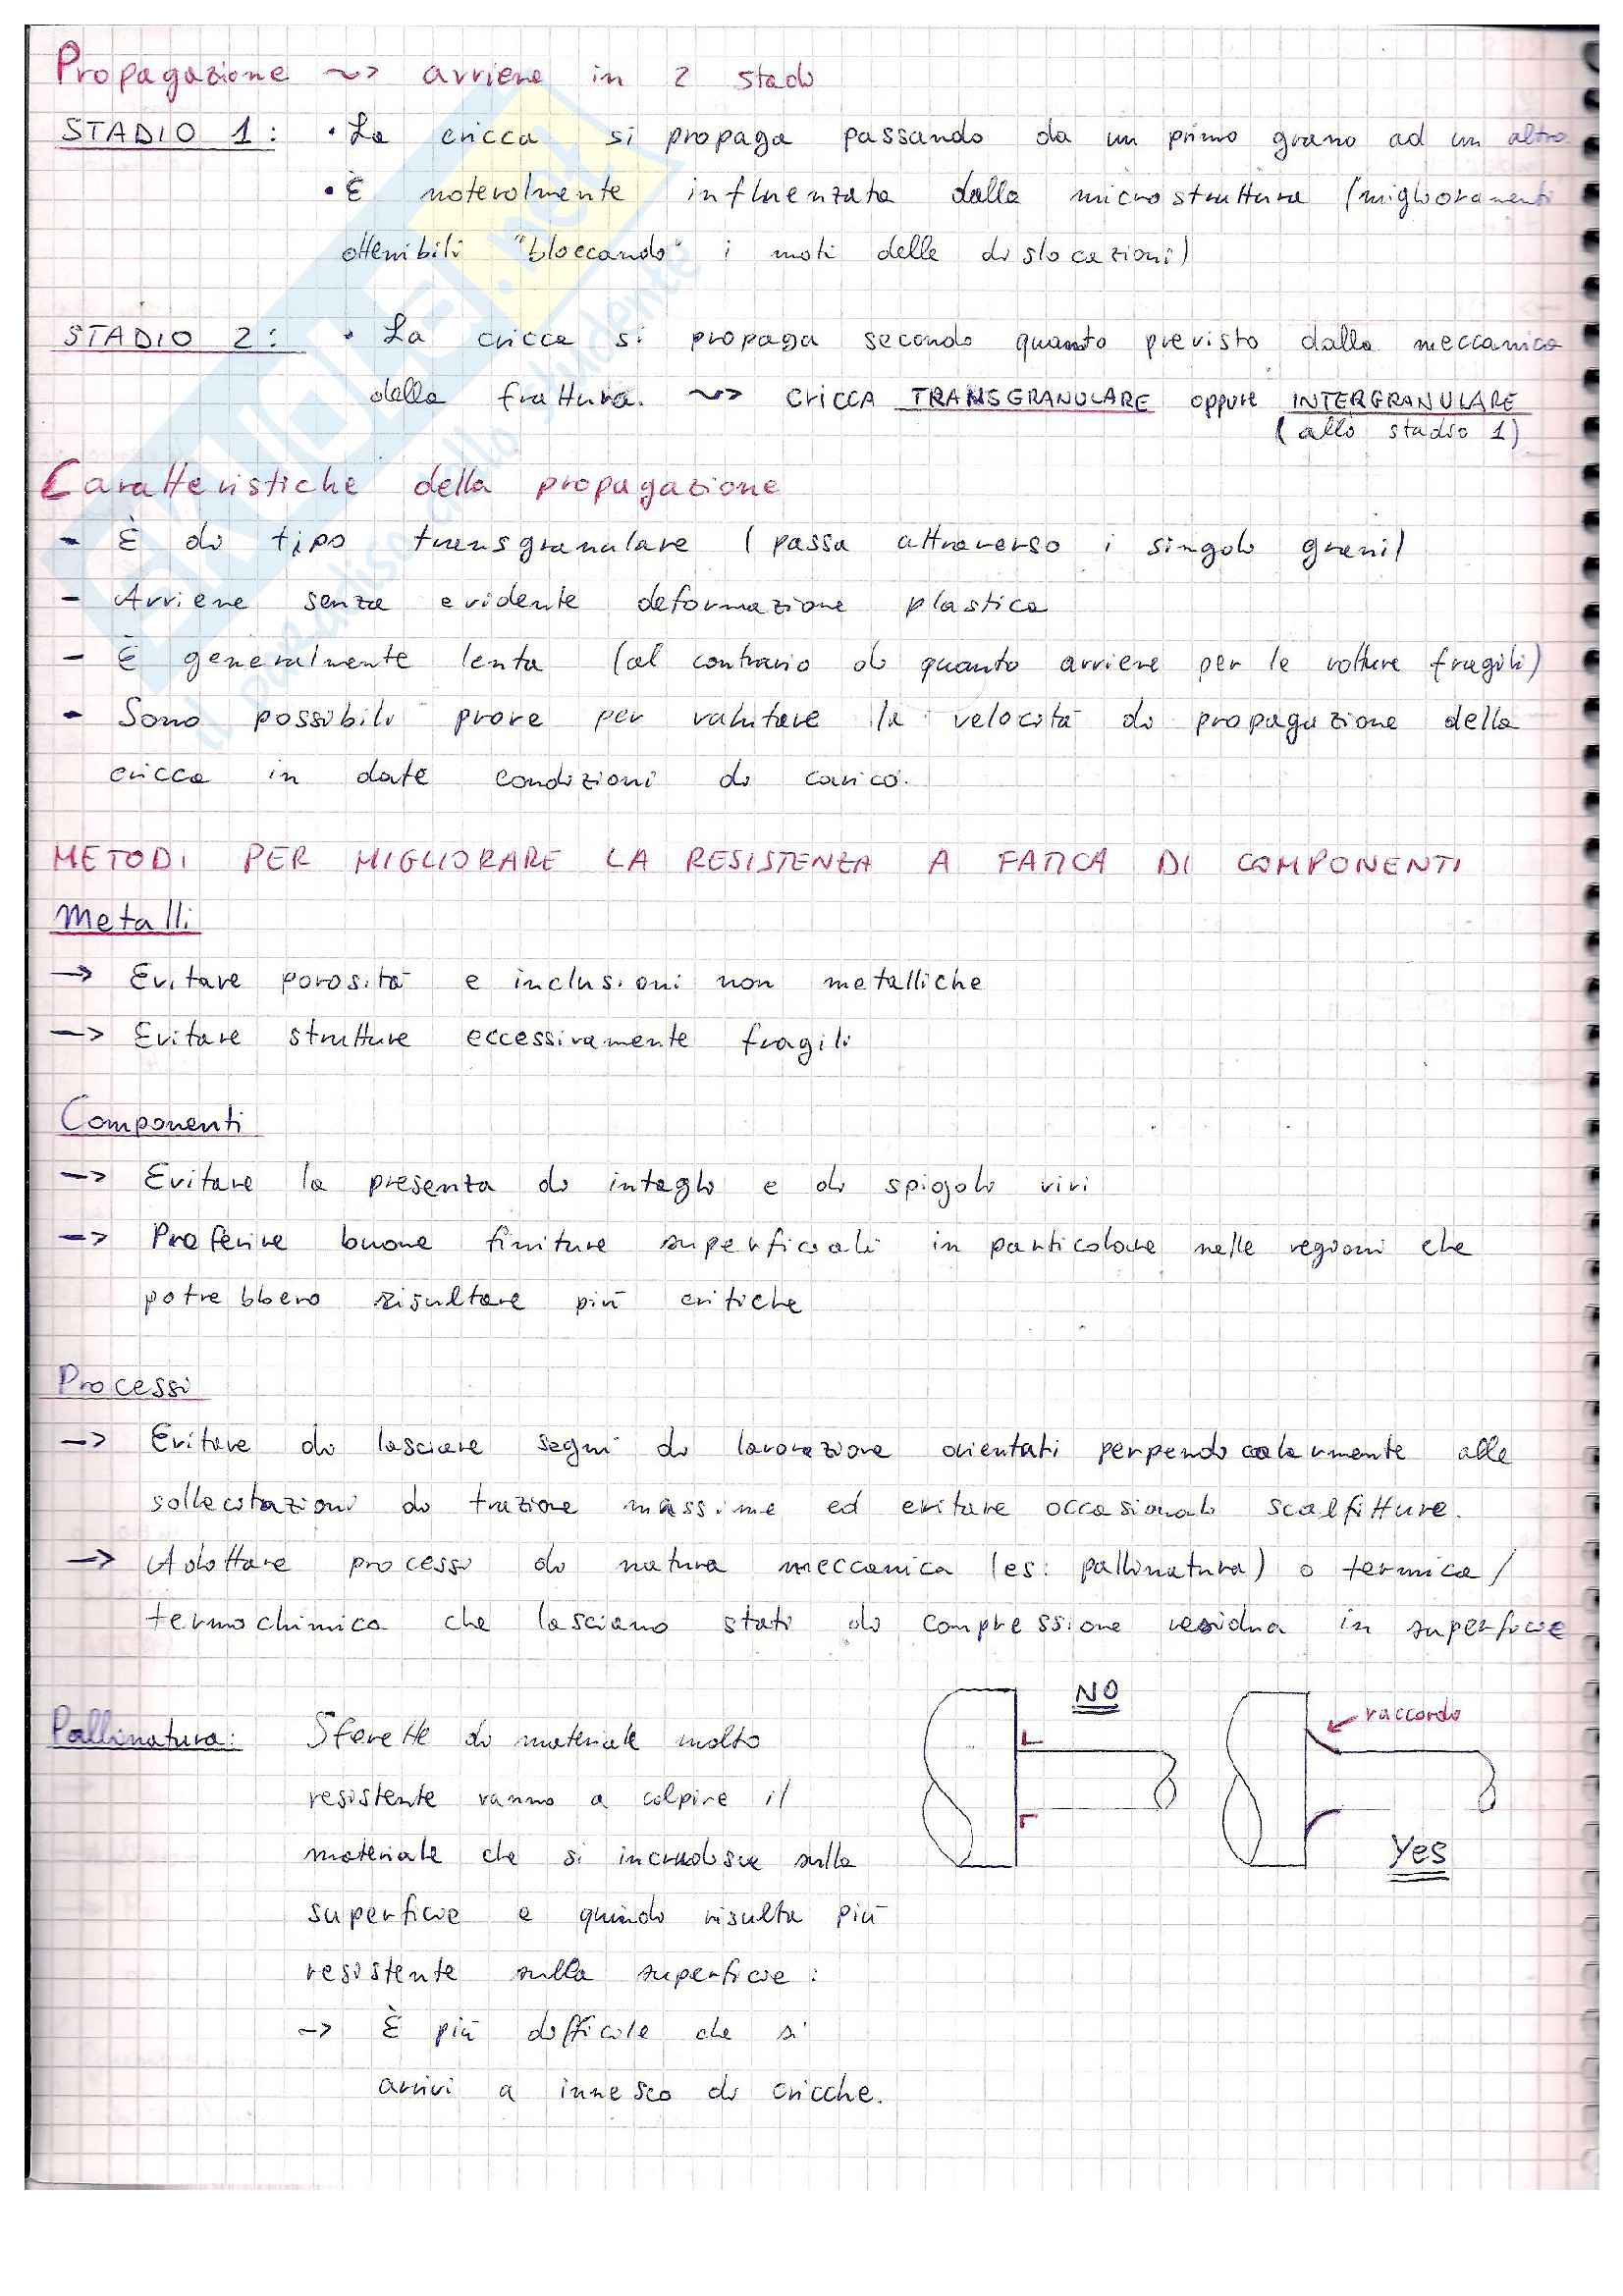 Propagazione ~> avviene in 2 stadi
STADIO 1: • La cricca si propaga passando da un primo grano ad un altro
• È notevolmente influenzata dalla microstruttura (miglioramenti
ottenibili "bloccando" i moti delle dislocazioni)
STADIO 2: • La cricca si propaga secondo quanto previsto dalla meccanica
della frattura. ~> CRICCA TRANSGRANULARE oppure INTERGRANULARE
(allo stadio 1)
Caratteristiche della propagazione
- È di tipo transgranulare (passa attraverso i singoli grani)
- Avviene senza evidente deformazione plastica
- È generalmente lenta (al contrario di quanto avviene per le rotture fragili)
- Sono possibili prove per valutare la velocità di propagazione della
cricca in date condizioni di carico.
METODI PER MIGLIORARE LA RESISTENZA A FATICA DI COMPONENTI
Metalli
-> Evitare porosità e inclusioni non metalliche
-> Evitare strutture eccessivamente fragili
Componenti
-> Evitare la presenza di intagli e di spigoli vivi
-> Preferire buone finiture superficiali in particolare nelle regioni che
potrebbero risultare più critiche
Processi
-> Evitare di lasciare segni di lavorazione orientati perpendicolarmente alle
sollecitazioni di trazione massime ed evitare occasionali scalfitture.
-> Adottare processi di natura meccanica (es: pallinatura) o termica/
termochimica che lasciano stati di compressione residua in superficie
NO
raccordo
Pallinatura: Sferette di materiale molto
resistente vanno a colpire il
materiale che si incrudisce sulla
Yes
superficie e quindi risulta più
resistente sulla superficie:
-> È più difficile che si
arrivi a innesco di cricche.